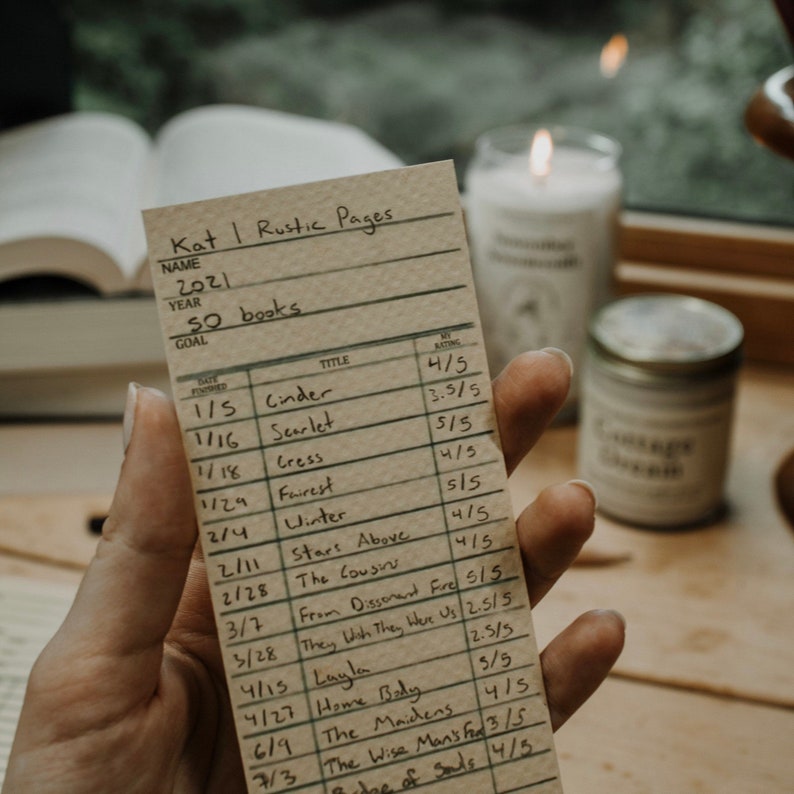 Kat | Rustic Pages
NAME
2021
YEAR
50 books
GOAL
DATE FINISHED TITLE MY RATING
1/5 Cinder 4/5
1/16 Scarlet 3.5/5
1/18 Cress 5/5
1/29 Fairest 4/5
2/4 Winter 5/5
2/11 Stars Above 4/5
2/28 The Cousins 4/5
3/7 From Dissonant Fire 5/5
3/28 They Wish They Were Us 2.5/5
4/15 Layla 2.5/5
4/27 Home Body 5/5
6/9 The Maidens 4/5
7/3 The Wise Man's Fear 3/5
of Souls 4/5
Cottage